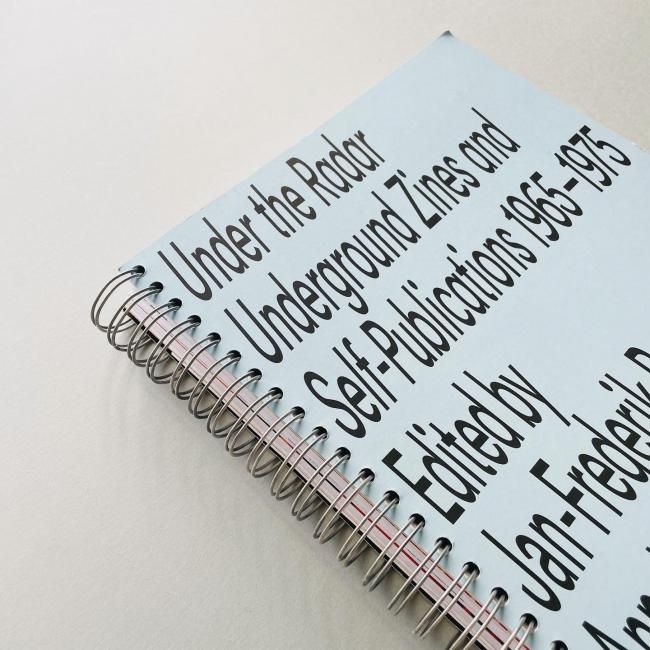 Under the Radar
Underground Zines and
Self-Publications 1965–1975
Edited by
Jan-Frederik